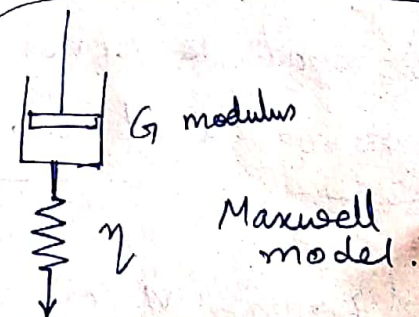 G modulus
η
Maxwell
model.